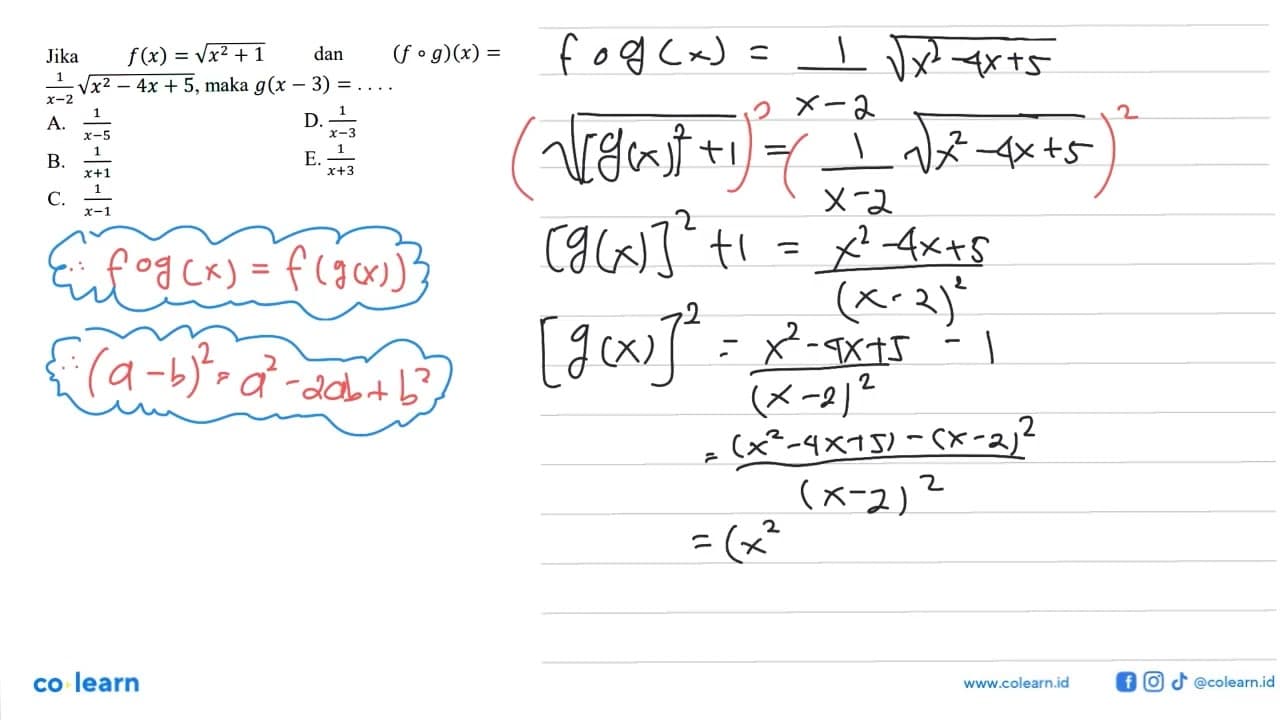 Jika f(x) = √(x² + 1) dan (f ∘ g)(x) =
1/(x−2) √(x² − 4x + 5), maka g(x − 3) = . . . .
A. 1/(x−5) D. 1/(x−3)
B. 1/(x+1) E. 1/(x+3)
C. 1/(x−1)
∴ fog(x) = f(g(x))
∴ (a-b)² = a² - 2ab + b²
fog(x) = 1/(x-2) √(x²-4x+5)
(√([g(x)]²+1))² = (1/(x-2) √(x²-4x+5))²
[g(x)]² + 1 = (x²-4x+5)/(x-2)²
[g(x)]² = (x²-4x+5)/(x-2)² - 1
= ((x²-4x+5)-(x-2)²)/(x-2)²
= (x²
co learn
www.colearn.id
@colearn.id